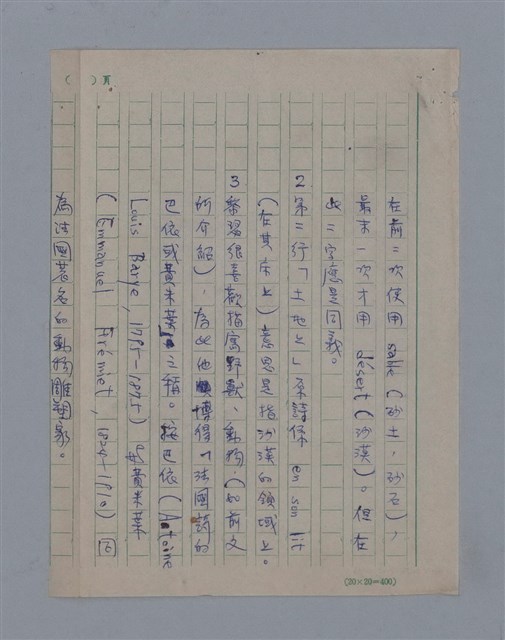 ( )頁
在前二次使用 sable(砂土,砂石),
最末一次才用 désert(沙漠)。但在
此二字應是同義。
2. 第二行「土地上」原詩係 en son lit
(在其床上)意思是指沙漠的領域上。
3 黎瑟很喜歡描寫野獸、動物,(如前文
所介紹),為此他博得「法國詩的
巴依或費米葉」之稱。按巴依(Antoine
Louis Barye, 1795-1875)與費米葉
(Emmanuel Frémiet, 1824-1910)同
為法國著名的動物雕塑家。
(20×20=400)